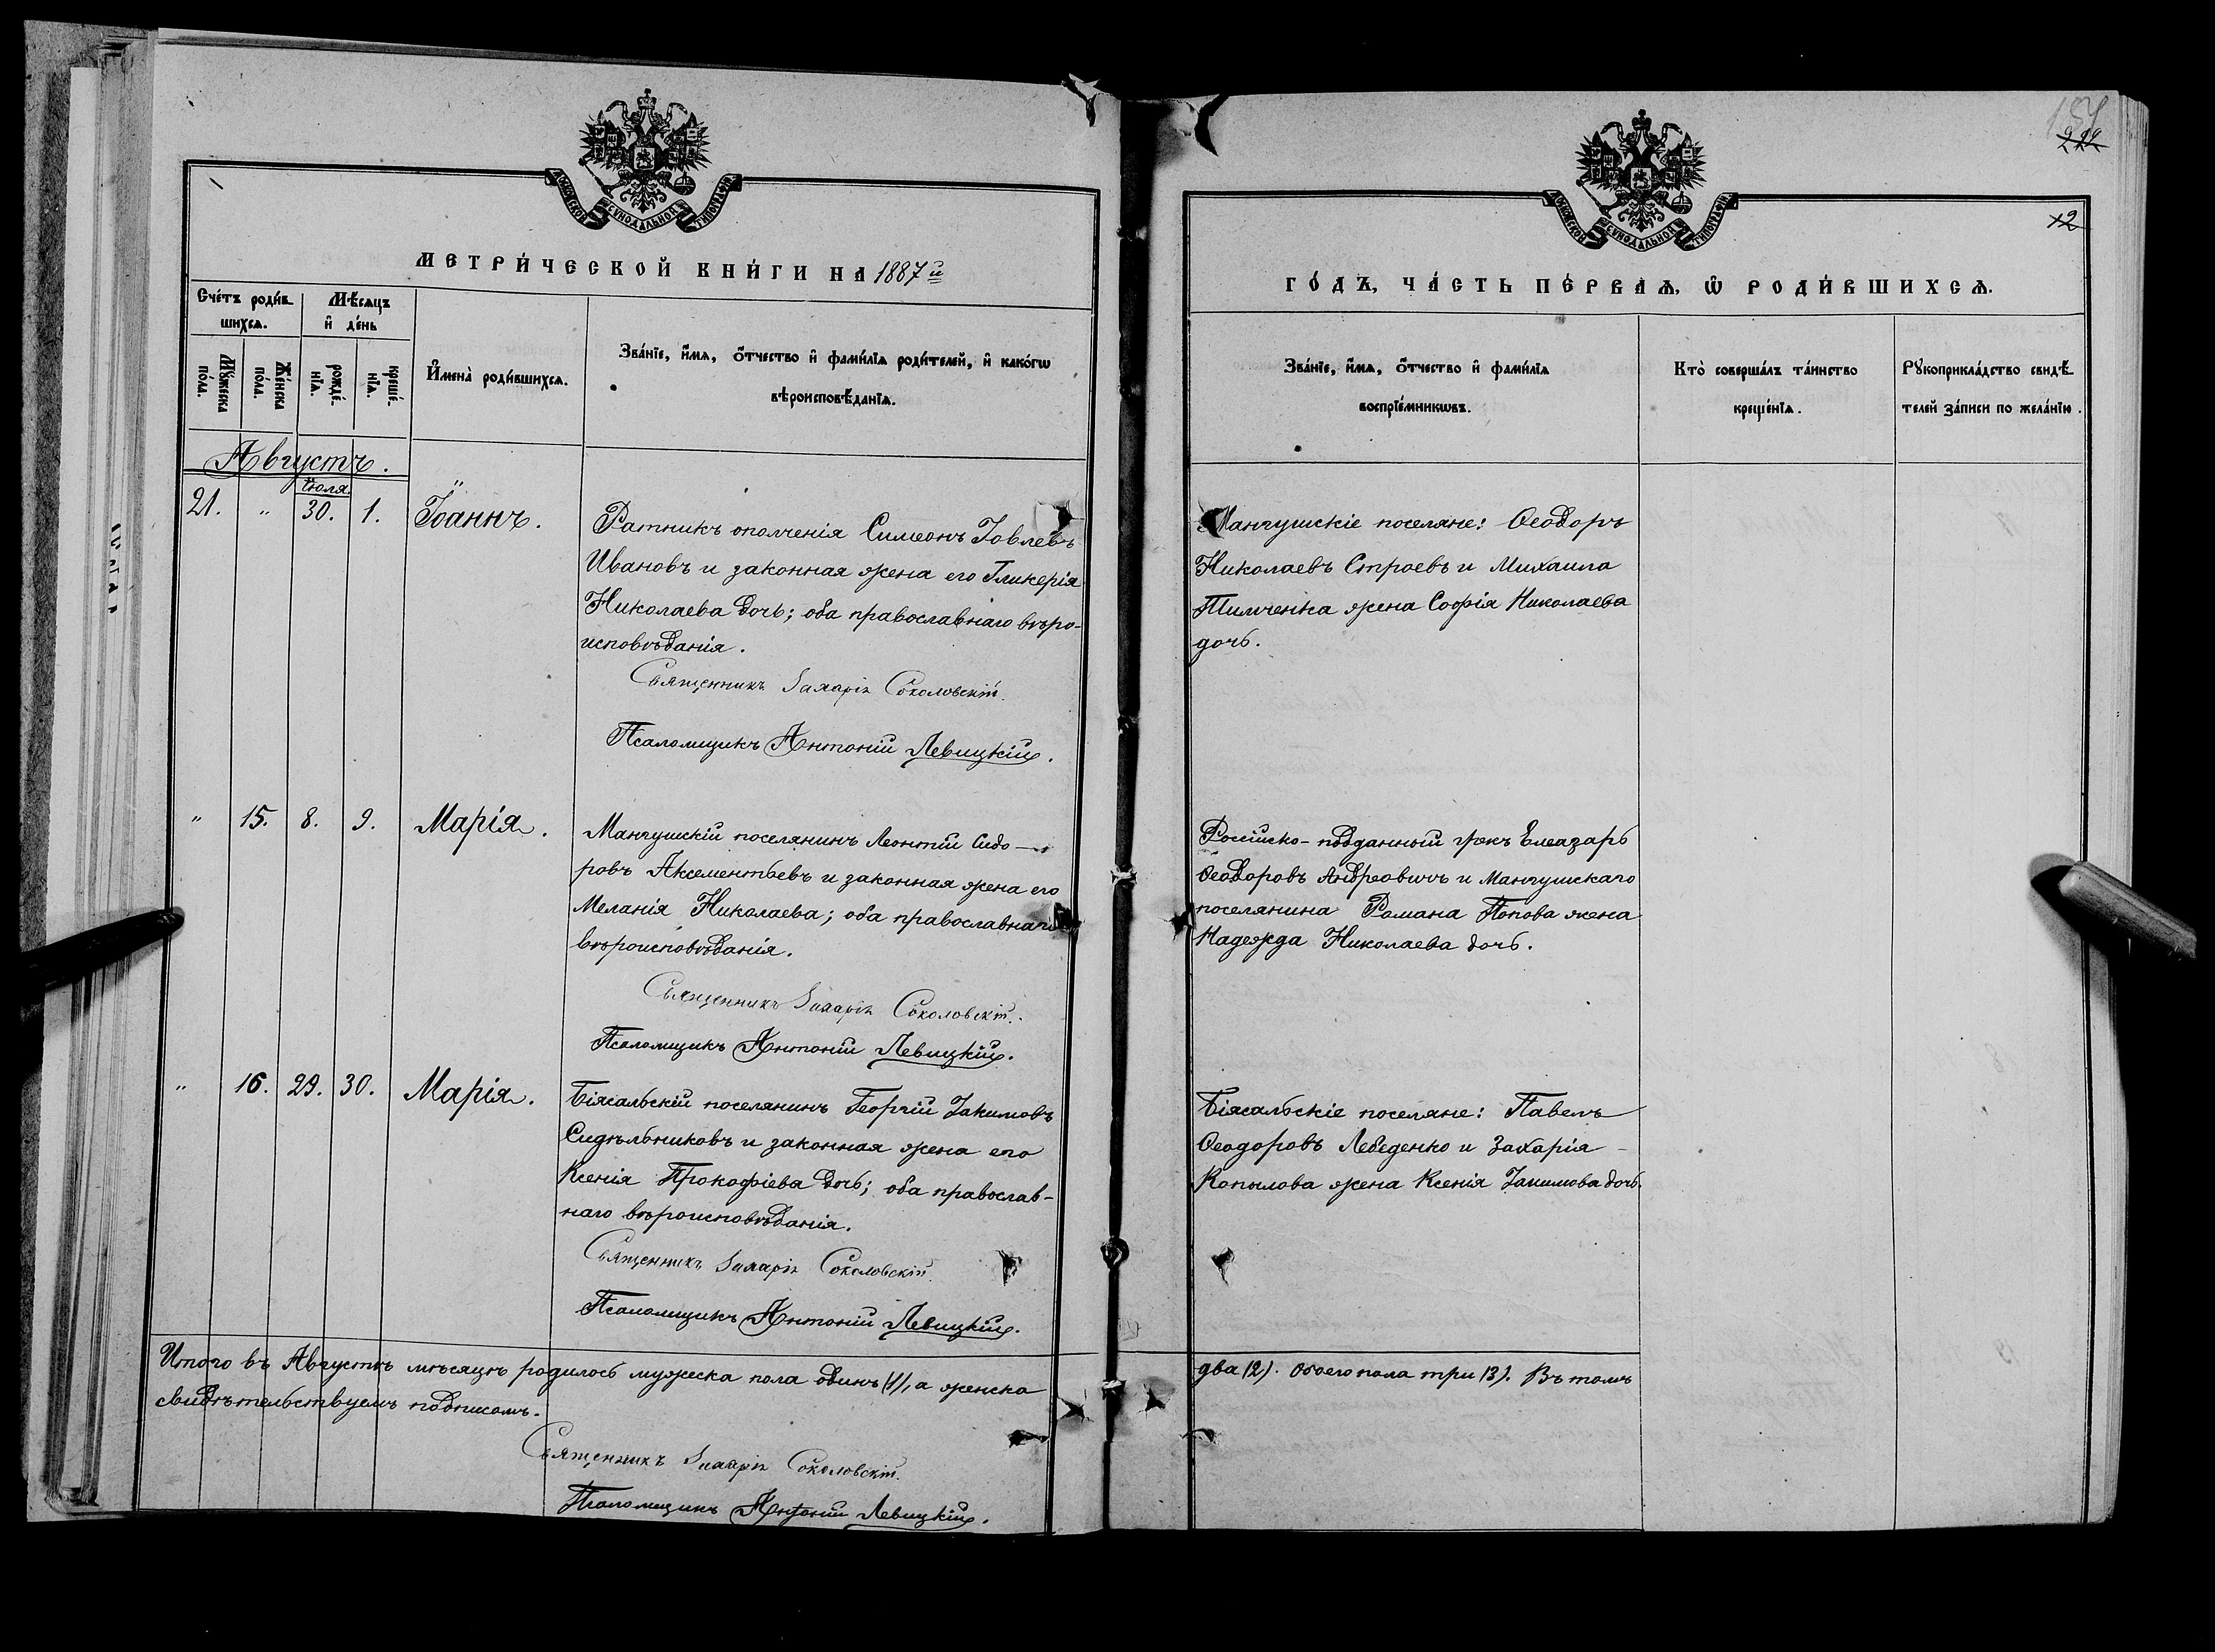 154
222
12
МОСКОВСКОЙ СѴНОДАЛЬНОЙ ТИПОГРАФІИ
МЕТРИ́ЧЕСКОЙ КНИ́ГИ НА 1887й
Сче́тъ роди́в-
шихсѧ.
Мѣ́сѧцъ
и҆ де́нь
Мꙋ́жеска
по́ла.
Же́нска
по́ла.
рожде́-
нїѧ.
креще́-
нїѧ.
И҆мена̀ роди́вшихсѧ.
Зва́нїе, и҆́мѧ, ѻ҆́тчество и҆ фами́лїѧ роди́телей, и҆ како́гѡ
вѣроисповѣ́данїѧ.
Августъ.
21.
"
Іюля
30.
1.
Іоаннъ.
Ратникъ ополченія Симеонъ Іовлевъ
Ивановъ и законная жена его Гликерія
Николаева дочь; оба православнаго вѣро-
исповѣданія.
Священникъ Захарія Соколовскій.
Псаломщикъ Антоній Левицкій.
"
15.
8.
9.
Марія.
Мангушскій поселянинъ Леонтій Сидо-
ровъ Аксементьевъ и законная жена его
Меланія Николаева; оба православнаго
вѣроисповѣданія.
Священникъ Захарія Соколовскій.
Псаломщикъ Антоній Левицкій.
"
16.
29.
30.
Марія.
Біясальскій поселянинъ Георгій Іакимовъ
Сидѣльниковъ и законная жена его
Ксенія Прокофіева дочь; оба православ-
наго вѣроисповѣданія.
Священникъ Захарія Соколовскій.
Псаломщикъ Антоній Левицкій.
Итого въ Августѣ мѣсяцѣ родилось мужеска пола одинъ (1), а женска
свидѣтельствуемъ подписомъ.
Священникъ Захарія Соколовскій.
Псаломщикъ Антоній Левицкій.
МОСКОВСКОЙ СѴНОДАЛЬНОЙ ТИПОГРАФІИ
ГО́ДЪ, ЧА́СТЬ ПЕ́РВАѦ, Ѡ҆ РОДИ́ВШИХСѦ.
Зва́нїе, и҆́мѧ, ѻ҆́тчество и҆ фами́лїѧ
воспрїе́мникѡвъ.
Кто̀ соверша́лъ та́инство
креще́нїѧ.
Рꙋкоприкла́дство свидѣ́-
телей за́писи по жела́нїю.
Мангушскіе поселяне: Ѳеодоръ
Николаевъ Строевъ и Михаила
Тимченка жена Софія Николаева
дочь.
Россійско-подданный грекъ Елеазаръ
Ѳеодоровъ Андреовичъ и Мангушскаго
поселянина Романа Попова жена
Надежда Николаева дочь.
Біясальскіе поселяне: Павелъ
Ѳеодоровъ Лебеденко и Захарія
Копылова жена Ксенія Іакимова дочь.
два (2). Обоего пола три (3). Въ томъ